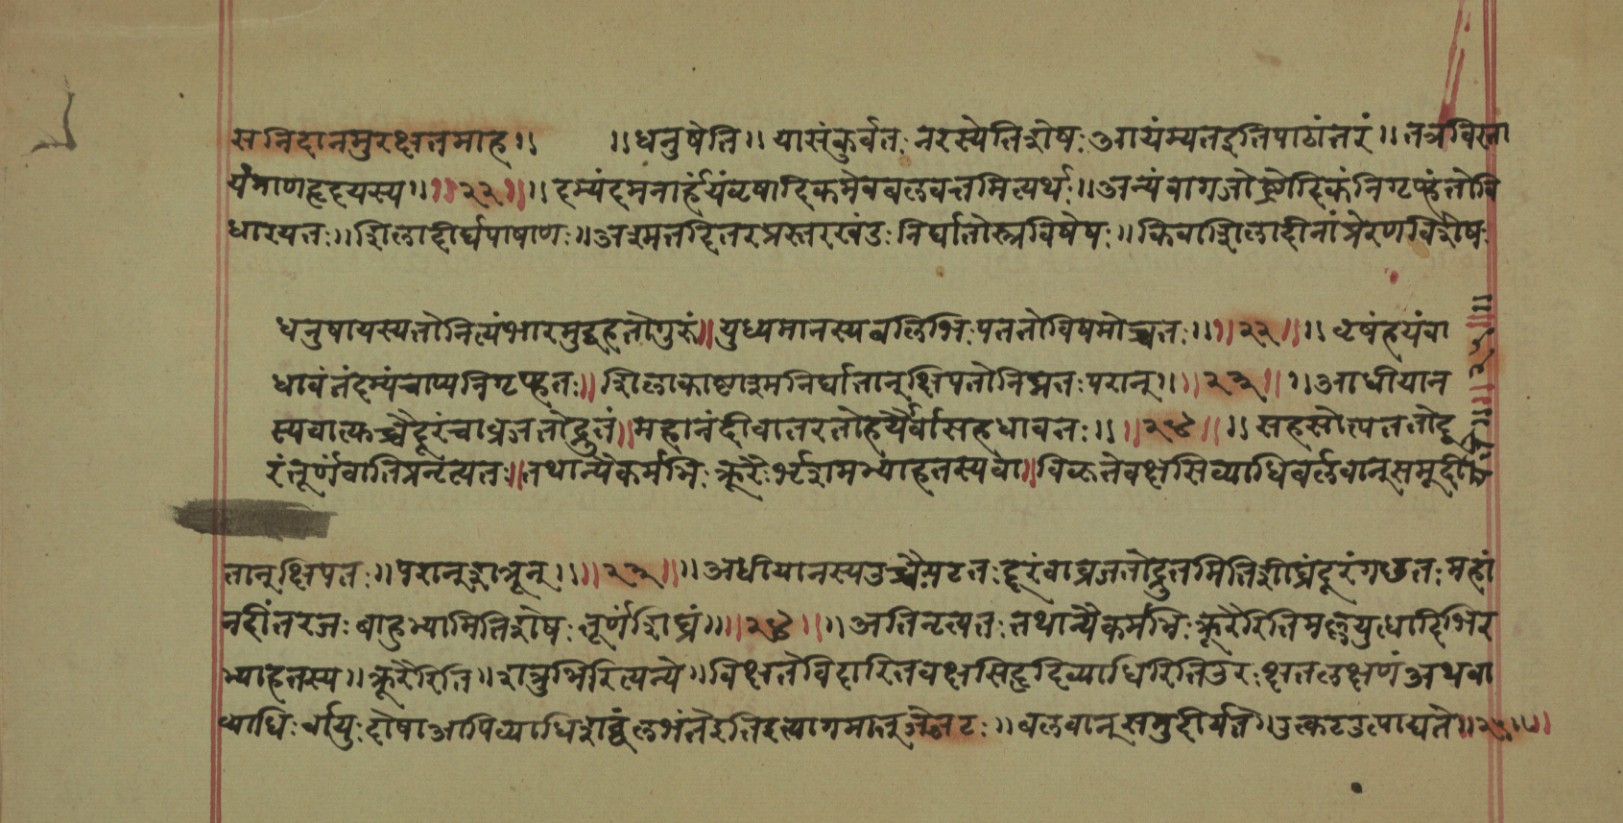 सनिदानमुरक्षतमाह ।। ।। धनुषेति ।। यासंकुर्वतः नरस्येतिशेषः आयंम्यतइतिपाठांतरं ।। तत्रविस्ता
र्यमाणहृदयस्य ।। ।।२२।। ।। दम्यंदमनार्हंहयंवृषादिकमेवबलवत्तमित्यर्थः ।। अन्यंवागजोष्ट्रादिकंनिगृण्हंतोवि
धारयतः ।। शिलादीर्घपाषाणः ।। अश्मतदितरप्रस्तरखंडः निर्घातोस्त्रविषेषः ।। किंवाशिलादीनांप्रेरणविशेषः
धनुषायस्यतोनित्यंभारमुद्वहतोगुरुं ।। युध्यमानस्यबलिभिः पततोविषमोच्चतः ।। ।।२२।। ।। वृषंहयंवा
धावंतंदम्यंचाप्यनिगृण्हतः ।। शिलाकाष्टाश्मनिर्घातानुक्षिपतोनिघ्नतः परान् ।। ।।२३।। ।। आधीयान
स्यवात्यच्चैर्दूरंवाव्रजतोद्रुतं ।। महानंदीवातरतोहयैर्वासहधावतः ।। ।।२४।। ।। सहसोत्पततोदू
रंतूर्णंवातिप्रनृत्यतः ।। तथान्यैकर्मभिः क्रूरैर्भृशमभ्याहतस्यवा ।। विक्षतेवक्षसिव्याधिर्बलवान्समूदी
तान्क्षिपतः ।। परान्शत्रून् ।। ।।२३।। ।। अधीयानस्यउच्चैःपठतः दूरंवाव्रजतोद्रुतमितिशीघ्रंदूरंगछतः महां
नदींतरजः बाहुभ्यामितिशेषः तूर्णंशिघ्रं ।। ।।२४।। ।। अतिनृत्यतः तथान्यैकर्मभिः क्रूरैरितिमल्लयुधादिभिर
भ्याहतस्य ।। क्रूरैरिति ।। शत्रुभिरित्यन्ये ।। विक्षतेविदारितवक्षसिहृदिव्याधिरितिउरः क्षतलक्षणं अथवा
व्याधिः वायुः दोषाआपिव्याधिशब्दंलभंतेरतिइत्यागमात् ।। बलवान्समुदीर्यते ।। उत्कटउत्पाद्यते ।। २५ ।।